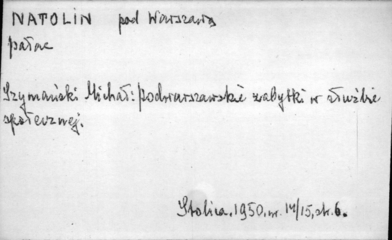 NATOLIN pod Warszawą
pałac
Szymański Michał: Podwarszawskie zabytki w służbie
społecznej.
Stolica, 1950, nr. 14/15, str. 6.